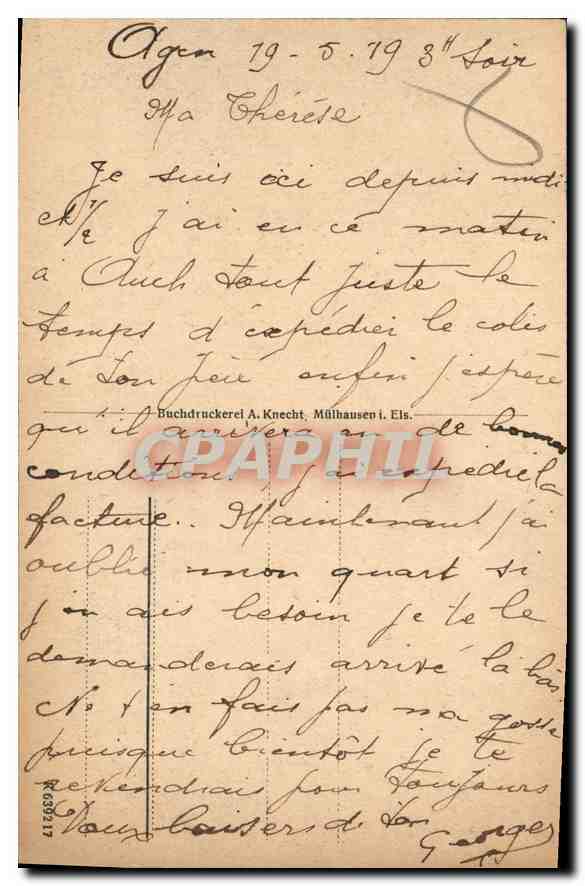 Agen 19-5-19 3H Soir
Ma Thérèse
Je suis ici depuis midi
et 1/2 j'ai eu ce matin
à Auch tout juste le
temps d'éxpédier le colis
de ton père enfin j'espère
Buchdruckerei A. Knecht, Mülhausen i. Els.
qu'il arrivera en de bonnes
CPAPHIL
condition. j'ai expédié la
facture.. Maintenant j'ai
oublié mon quart si
j'en ais besoin je te le
demanderais arrivé là bas
Ne t'en fais pas ma gosse
puisque bientôt je te
reviendrais pour toujours
Doux baisers de ton
Georges
K 639217